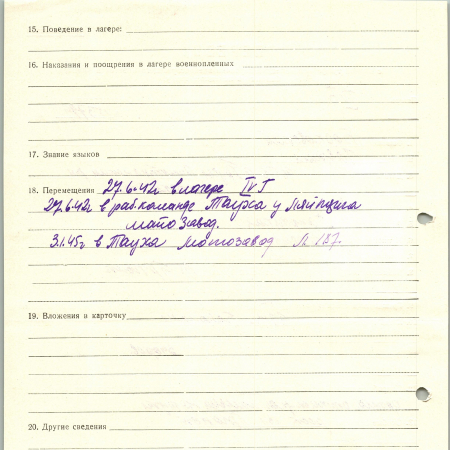 15. Поведение в лагере:
16. Наказания и поощрения в лагере военнопленных
17. Знание языков
18. Перемещения 27.6.42г в лагере IVГ
27.6.42 в раб.команде Тауха у Ляйпцига
мото завод.
3.1.45г в Тауха Мотозавод № 137.
19. Вложения в карточку
20. Другие сведения